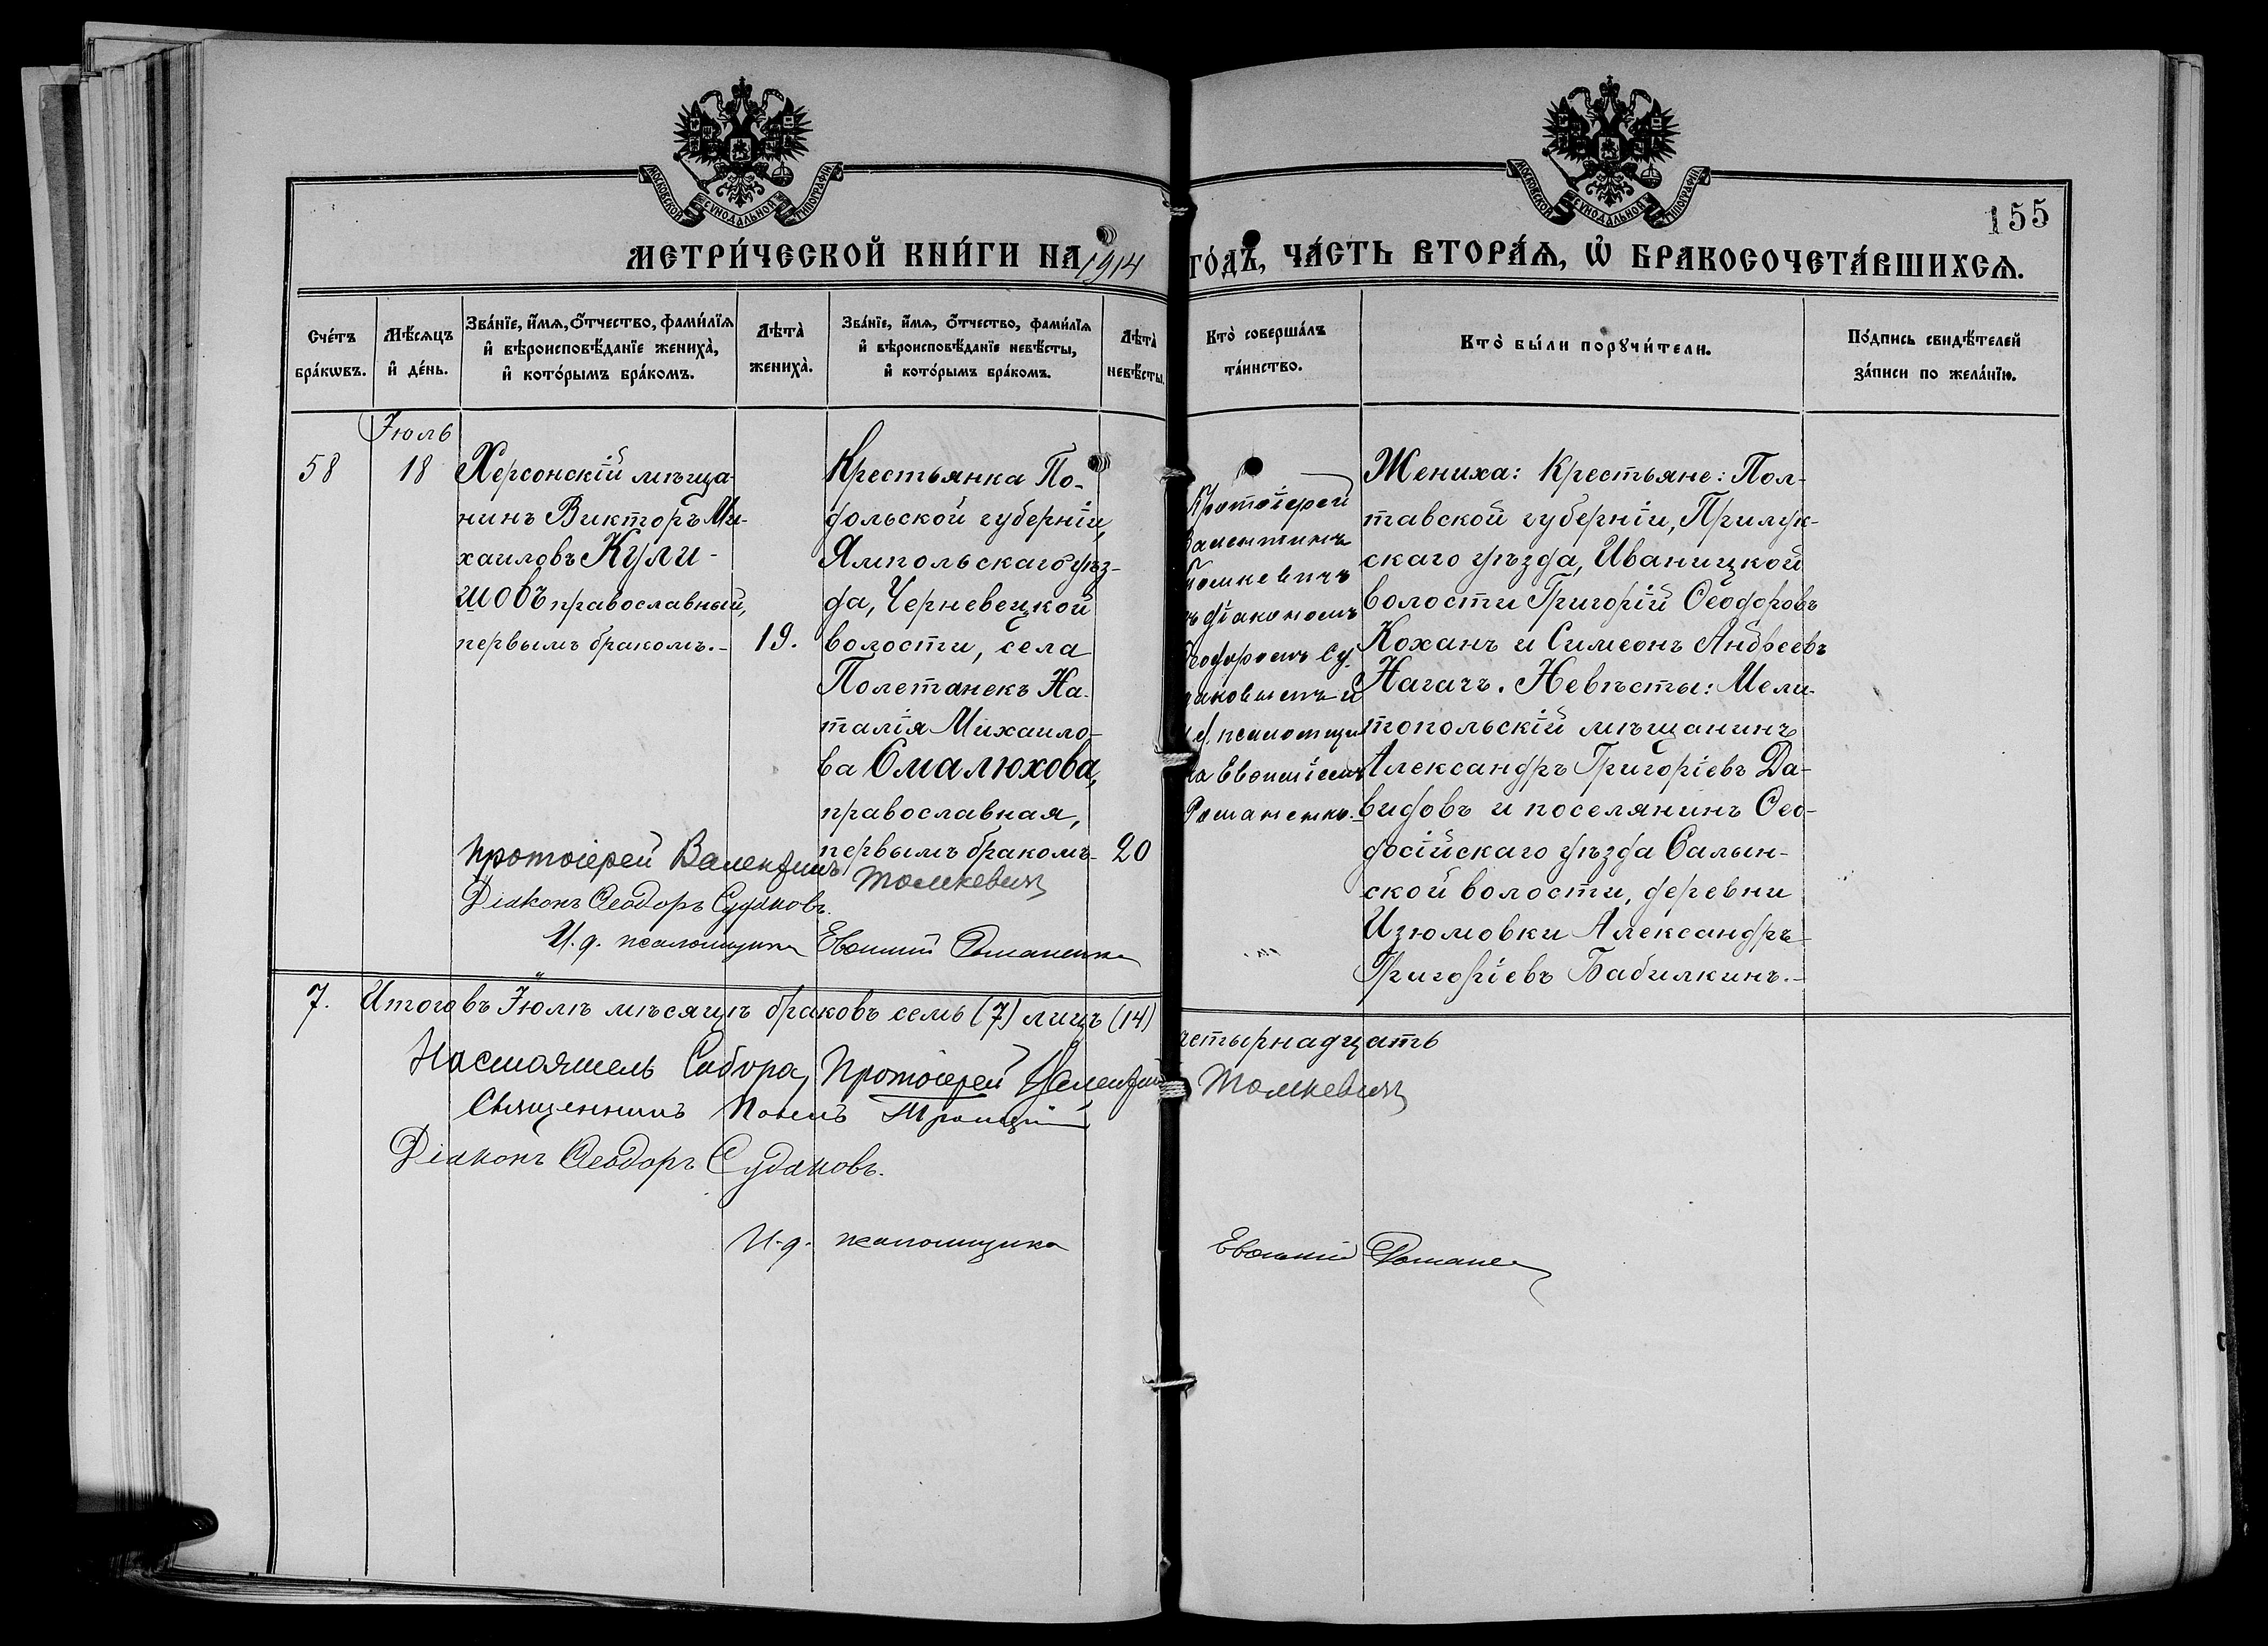 МОСКОВСКОЙ СѴНОДАЛЬНОЙ ТИПОГРАФІИ
МОСКОВСКОЙ СѴНОДАЛЬНОЙ ТИПОГРАФІИ
155
МЕТРИ́ЧЕСКОЙ КНИ́ГИ НА 1914 ГО́ДЪ, ЧА́СТЬ ВТОРА́Ѧ, Ѡ БРАКОСОЧЕТА́ВШИХСѦ.
Сче́тъ
бра́кѡвъ.
Мѣ́сѧцъ
и҆ де́нь.
Зва́нїе, и҆́мѧ, ѻ҆́тчество, фами́лїѧ
и҆ вѣроисповѣ́данїе жениха̀,
и҆ кото́рымъ бра́комъ.
Лѣта̀
жениха̀.
Зва́нїе, и҆́мѧ, ѻ҆́тчество, фами́лїѧ
и҆ вѣроисповѣ́данїе невѣ́сты,
и҆ кото́рымъ бра́комъ.
Лѣта̀
невѣ́сты.
Кто̀ соверша́лъ
та́инство.
Кто̀ бы́ли порꙋчи́тели.
По́дпись свидѣ́телей
за́писи по жела́нїю.
Іюль
58
18
Херсонскій мѣща-
нинъ Викторъ Ми-
хаиловъ Кули-
шовъ православный,
первымъ бракомъ.-
19.
Крестьянка По-
дольской губерніи,
Ямпольскаго уѣз-
да, Черневецкой
волости, села
Полетанекъ На-
талія Михаило-
ва Смалюхова,
православная,
первымъ бракомъ.-
20
Протоіерей
Валентинъ
Томкевичъ
съ діакономъ
Ѳеодоромъ Су-
даковымъ и
и.д. псаломщи-
ка Евѳиміемъ
Романенко.-
Жениха: Крестьяне: Пол-
тавской губерніи, Прилук-
скаго уѣзда, Иваницкой
волости Григорій Ѳеодоровъ
Коханъ и Симеонъ Андреевъ
Нагачъ. Невѣсты: Мели-
топольскій мѣщанинъ
Александръ Григоріевъ Да-
видовъ и поселянинъ Ѳео-
досійскаго уѣзда Салын-
ской волости, деревни
Изюмовки Александръ
Григоріевъ Бабилкинъ.-
Протоіерей Валентинъ Томкевичъ
Діаконъ Ѳеодоръ Судаковъ.
И.д. псаломщика Евѳимій Романенко
7. Итого въ Іюлѣ мѣсяцѣ браковъ семь (7) лицъ (14) четырнадцать
Настоятель Собора, Протоіерей Валентинъ Томкевичъ
Священникъ Павелъ Троицкій
Діаконъ Ѳеодоръ Судаковъ.
И.д. псаломщика Евѳимій Романе